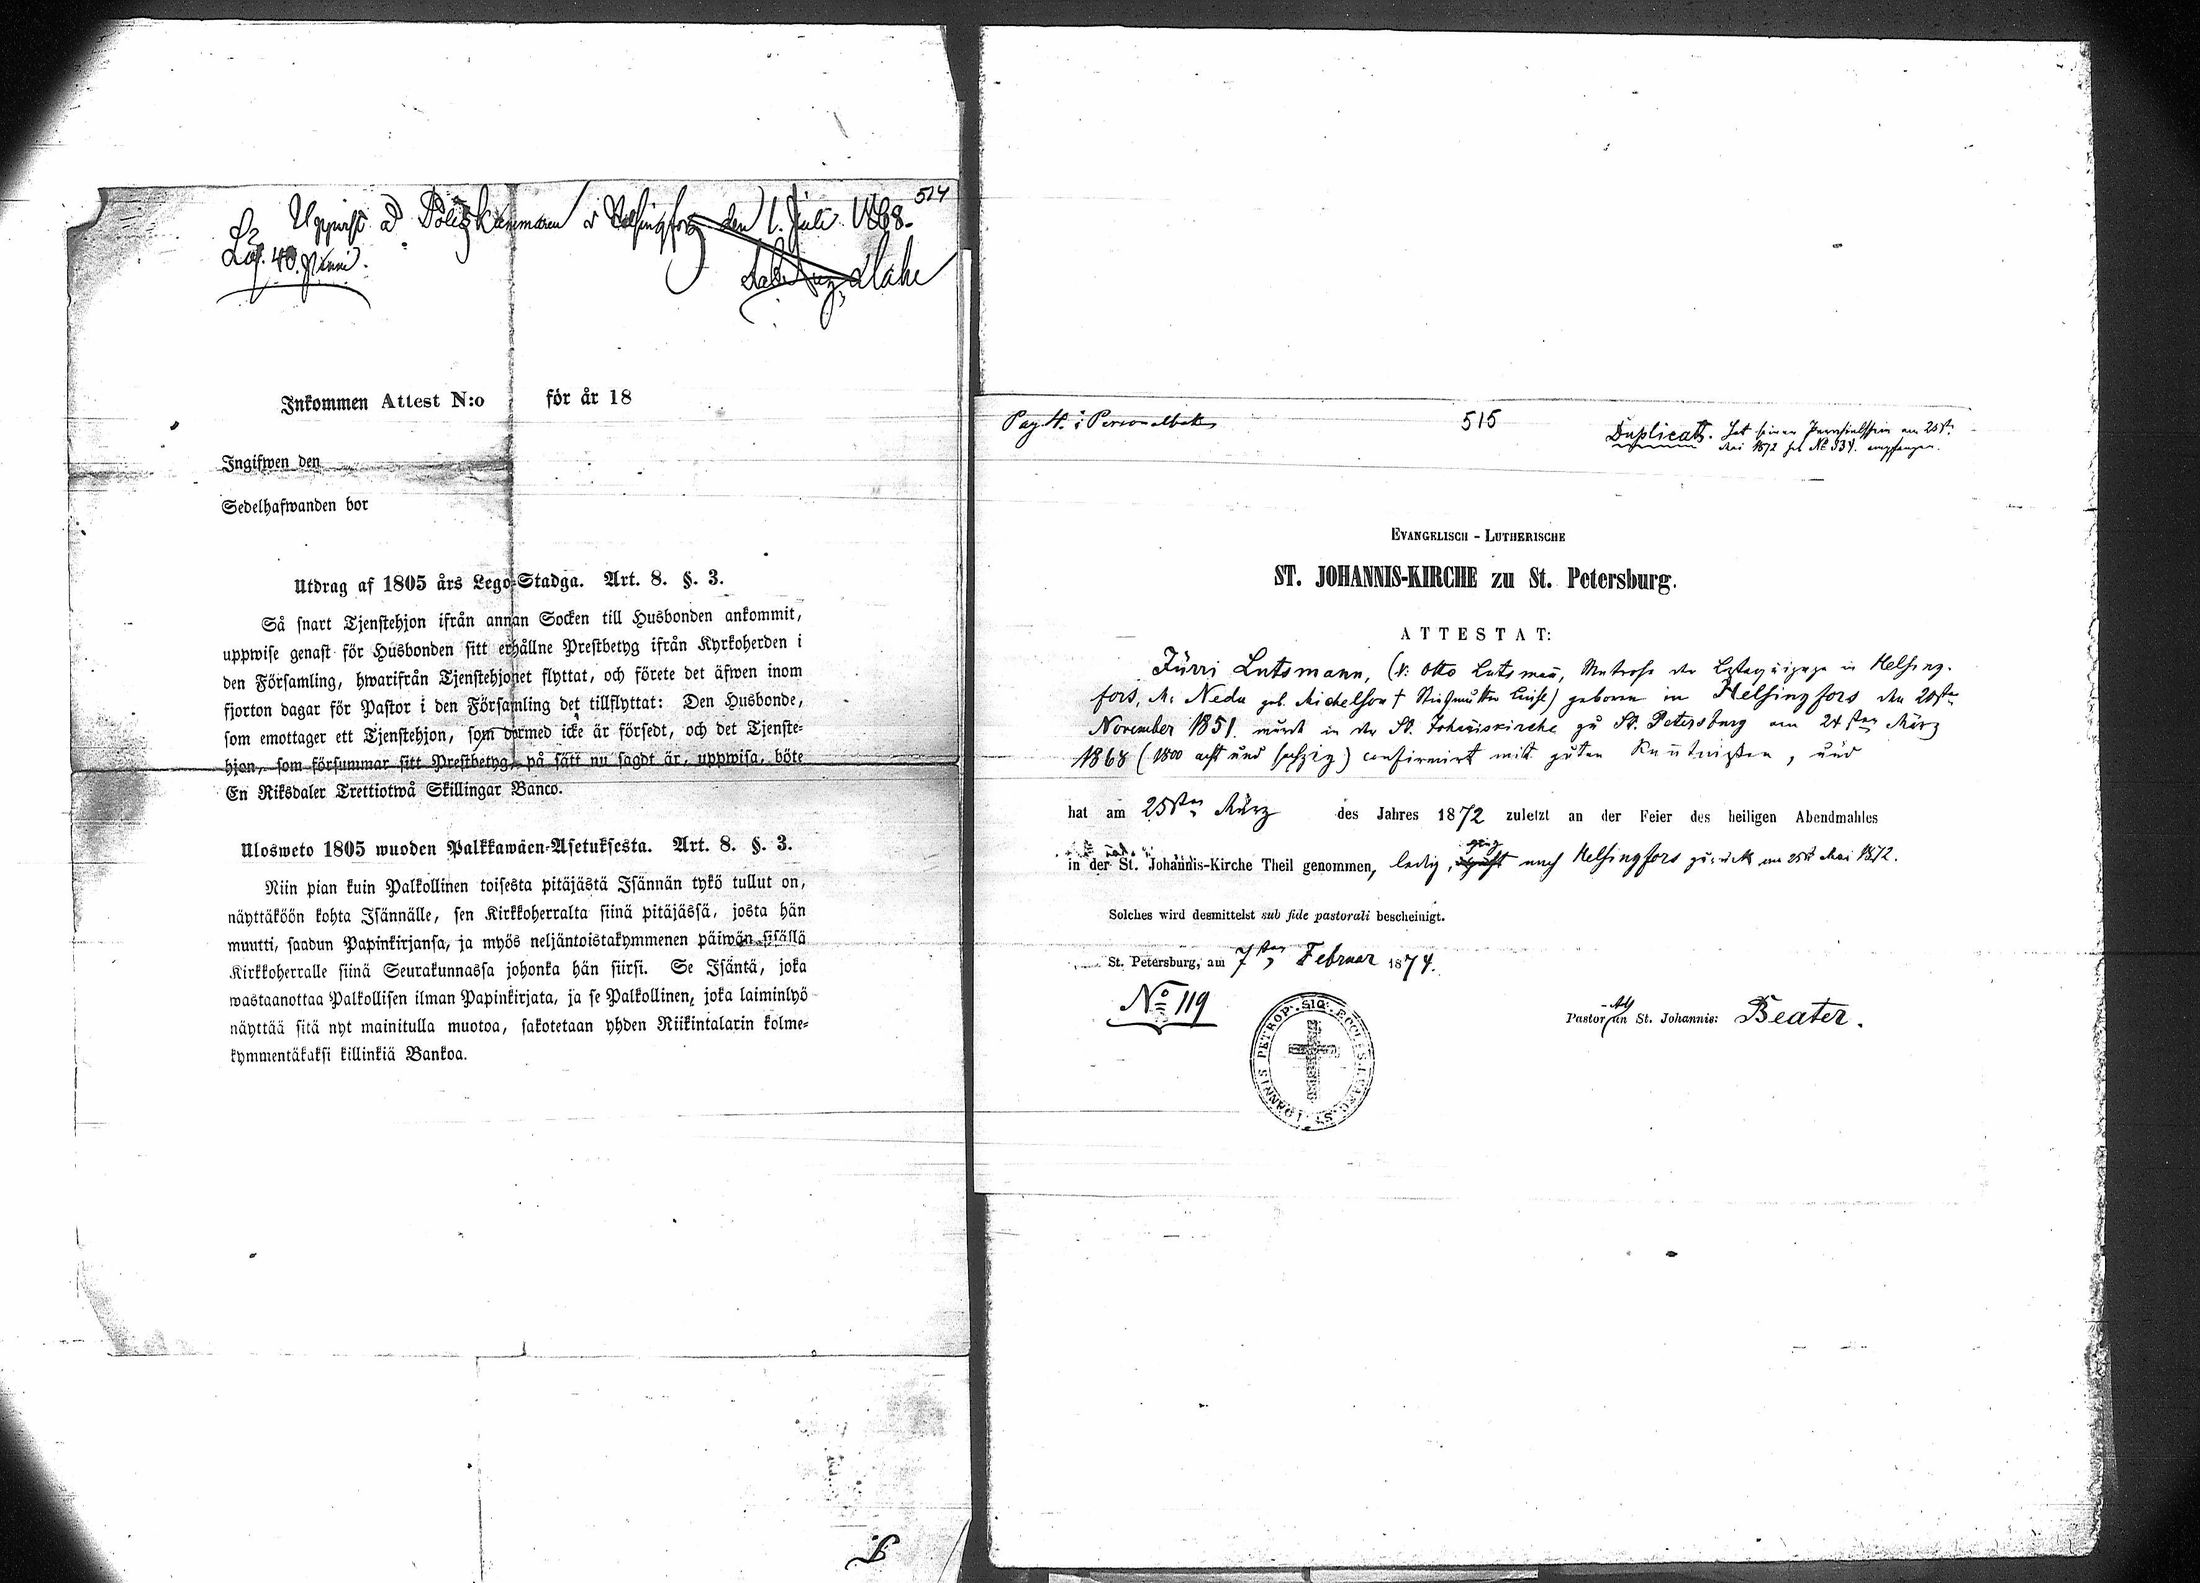 514
Uppvist å Poliskammaren i Helsingfors den 1. Juli 1868.
Lös. 40. Penni.
Inkommen Attest N:o för år 18
Ingifwen den
Sedelhafwanden bor
Utdrag af 1805 års Lego-Stadga. Art. 8. §. 3.
Så snart Tjenstehjon ifrån annan Socken till Husbonden ankommit,
uppwise genast för Husbonden sitt erhållne Prestbetyg ifrån Kyrkoherden i
den Församling, hwarifrån Tjenstehjonet flyttat, och förete det äfwen inom
fjorton dagar för Pastor i den Församling det tillflyttat: Den Husbonde,
som emottager ett Tjenstehjon, som dermed icke är försedt, och det Tjenste-
hjon, som försummar sitt Prestbetyg, på sätt nu sagdt är, uppwisa, böte
En Riksdaler Trettiotwå Skillingar Banco.
Ulosweto 1805 wuoden Palkkawäen-Asetuksesta. Art. 8. §. 3.
Niin pian kuin Palkollinen toisesta pitäjästä Isännän tykö tullut on,
näyttäköön kohta Isännälle, sen Kirkkoherralta siinä pitäjässä, josta hän
muutti, saadun Papinkirjansa, ja myös neljäntoistakymmenen päiwän sisällä
Kirkkoherralle siinä Seurakunnassa johonka hän siirsi. Se Isäntä, joka
wastaanottaa Palkollisen ilman Papinkirjata, ja se Palkollinen, joka laiminlyö
näyttää sitä nyt mainitulla muotoa, sakotetaan yhden Riikintalarin kolme-
kymmentäkaksi killinkiä Bankoa.
Pag. 4. i Personalbok
515
Duplicat. Hat seinen Parochialschein am 25st.
Mai 1872 sub No 334. empfangen.
EVANGELISCH - LUTHERISCHE
ST. JOHANNIS-KIRCHE zu St. Petersburg.
ATTESTAT:
Jürri Lutsmann, (V: Otto Lutsmañ, Matrose der in Helsing-
fors, M: Nedu geb. Michelson † Stiefmutter Liese) geboren in Helsingfors den 20sten
November 1851. wurde in der St. Johañiskirche zu St. Petersburg am 24sten März
1868 (1800 acht und sechzig) confirmirt mit guten Keñtnissen, und
hat am 25sten März des Jahres 1872 zuletzt an der Feier des heiligen Abendmahles
in der St. Johannis-Kirche Theil genommen, ledig, ging nach Helsingfors zurück am 25st Mai 1872.
Solches wird desmittelst sub fide pastorali bescheinigt.
St. Petersburg, am 7sten Februar 1874.
No 119
SIG. ECCLES. EVANG. ST. IOANNIS PETROP.
Pastor-Adj an St. Johannis: Beater.